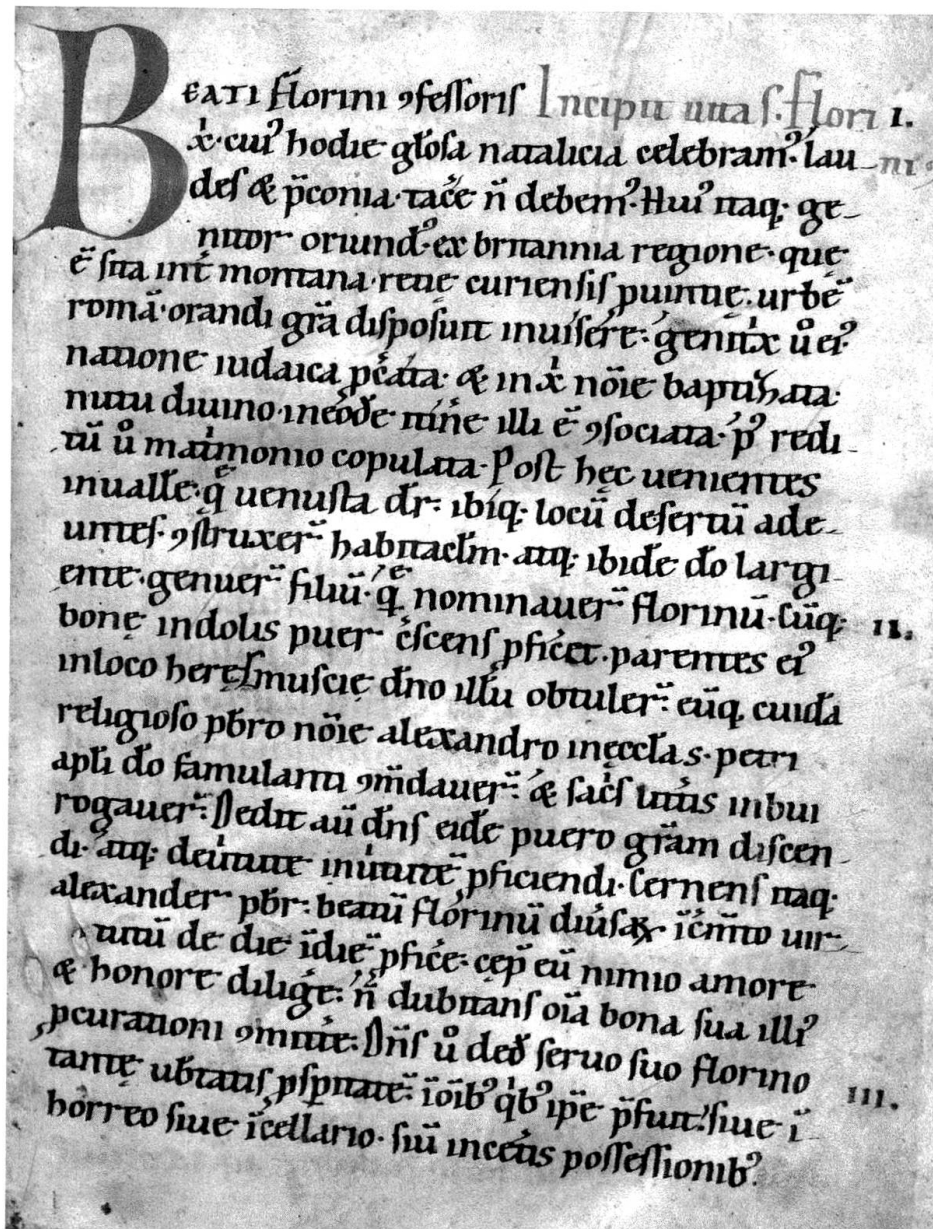 BEATI flōrini ꝯfessoris Incipit uita s. flori I.
xp̄i· cui᾽ hodie gl̄osa natalicia celebram᾽· lau ni
des & p̄conia· tac̄e n̄ debem᾽· Hui᾽ itaq; ge
nitor oriund᾽· ex britannia regione· quę
ē sita int̄ montana· retię curiensis ꝓuintię· urbē
romā· orandi gr̄a disposuit inuisere· genitͥx ů ei᾽
natione iudaica ꝓc̄ata· & in xp̄i nōie baptizata·
nutu diuino· ineōde itiñe illi ē ꝯsociata· p᾽ redi
tū ů matͥmonio copulata· Post hęc uenientes
inualle· quę uenusta dr̄· ibiq; locū desertū ade
untes· ꝯstruxer̄ habitacl̄m· atq; ibidē dō largi
ente· genuer̄ filiū· quē nominauer̄ florinū· Cūq; II.
bonę indolis puer c̄escens ꝓficeret· parentes ei᾽
inloco heręmuscię dn̄o illū obtuler̄· eūq; cuidā
religioso pbr̄o nōie alexandro inęccła s. petri
apl̄i dō famulanti ꝯm̄dauer̄· & sac̄s litt̄is inbui
rogauer̄· Dedit aū dn̄s eidē puero gr̄am discen
di· atq; deuirtute inuirtutē ꝓficiendi· Cernens itaq;
alexander pbr̄· beatū florinū diuersarū īc̄mto uir
tutū de die īdiē ꝓfic̄e· cęp̄ eū nimio amore
& honore diliḡe· n̄ dubitans oīa bona sua illi᾽
ꝓcurationi ꝯmitt̄e· Dn̄s ů dedͭ seruo suo florino
tantę ub̄tatis ꝓsꝑitatē· īoīb᾽ qͥb᾽ ip̄e p̄fuit· siue ī III.
horreo siue īcellario· siū incet̄is possessionib᾽